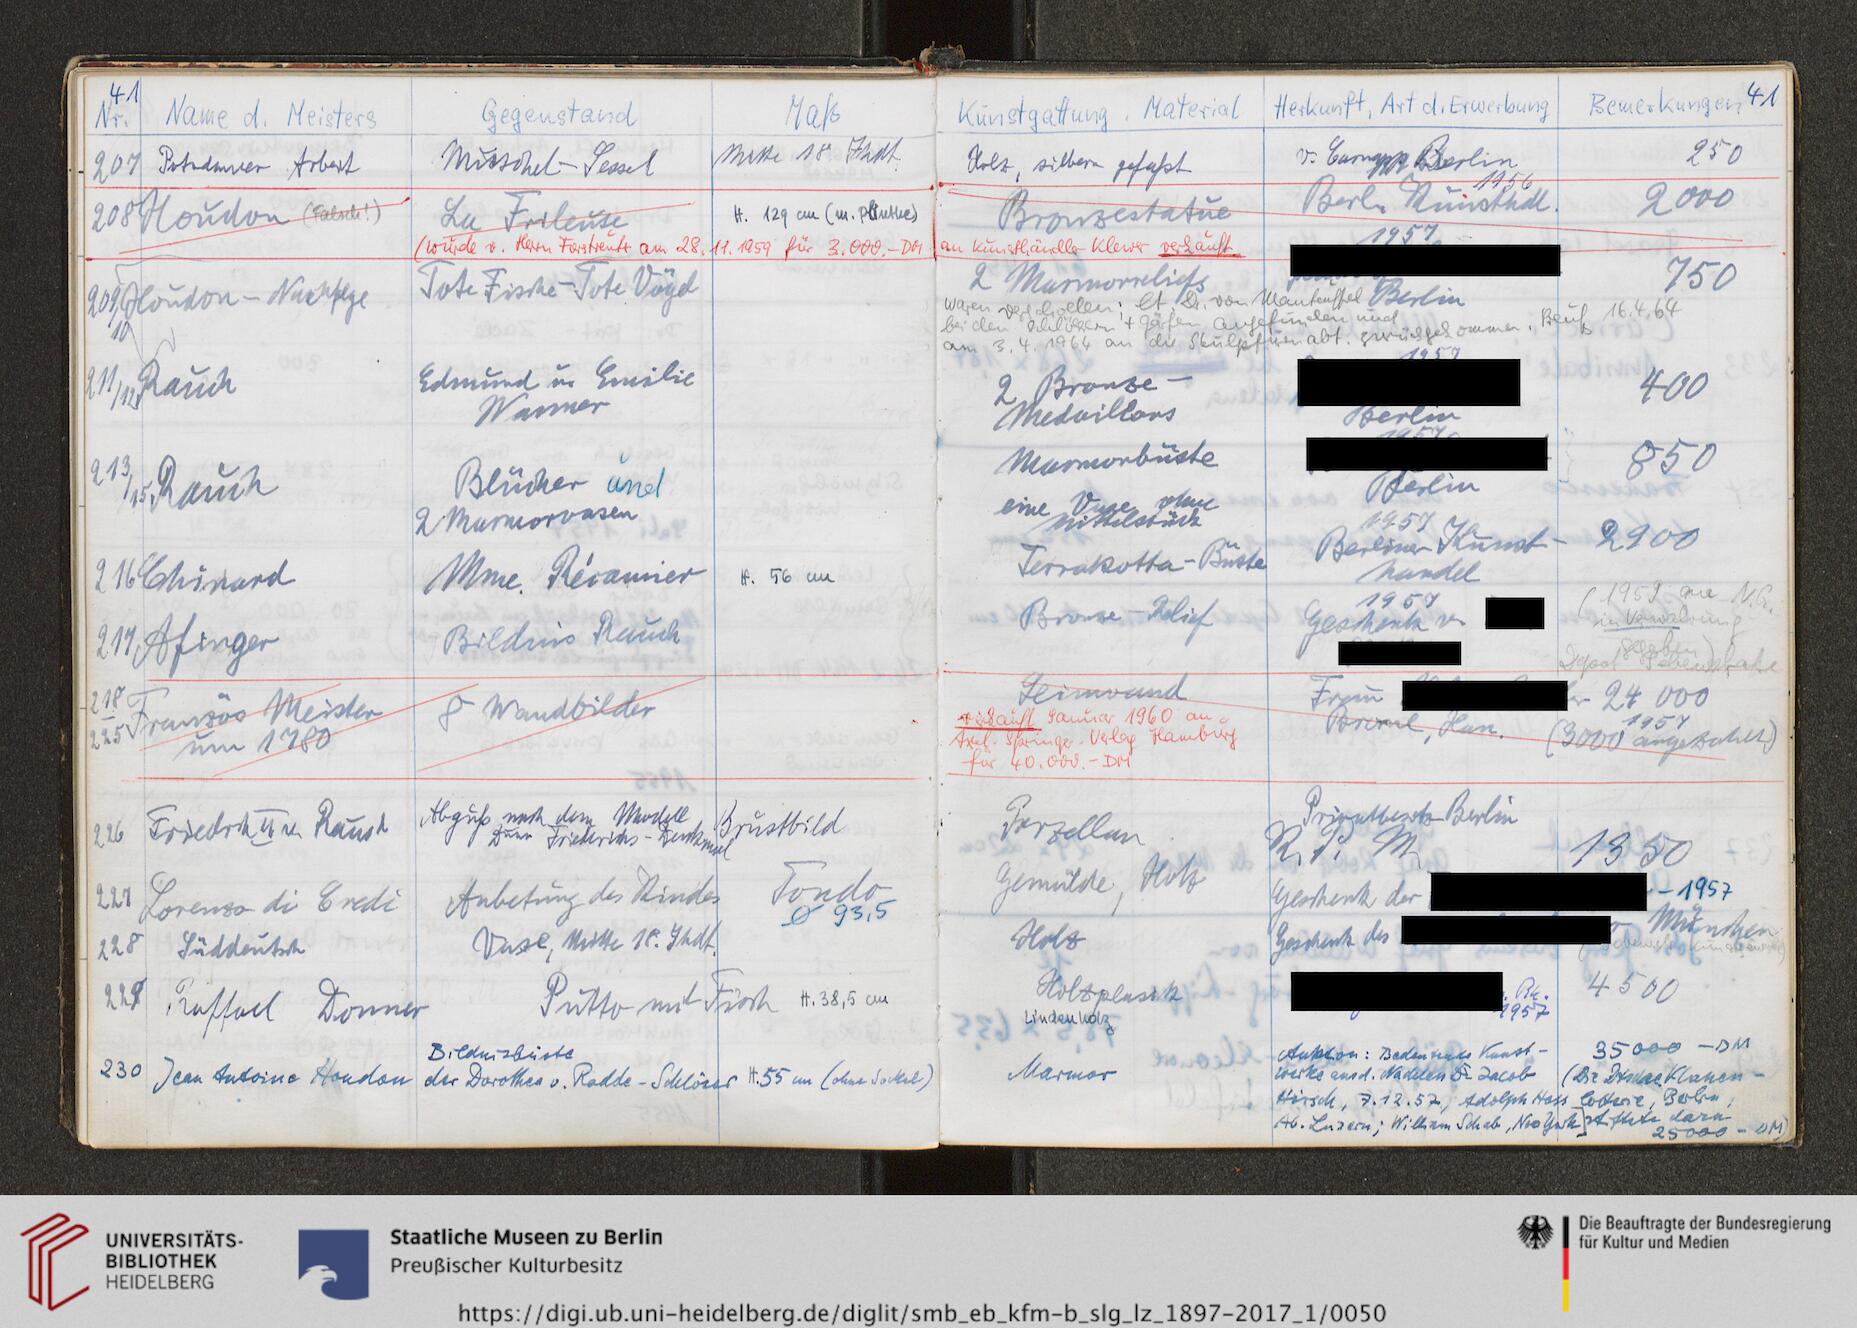 41
Nr. Name d. Meisters Gegenstand Maß Kunstgattung. Material Herkunft, Art d. Erwerbung Bemerkungen 41
207 Potsdamer Arbeit Muschel-Sessel Mitte 18. Jhdt. Holz, silbern gefaßt v. Berlin 250
208 Houdon (Falsch!) La Frileuse H. 129 cm (m. Plinthe) Bronzestatue Berl. Kunsthdl. 1956 2000
(wurde v. Herrn am 28.11.1959 für 3.000.-DM an Kunsthändler Klewer verkauft
1957
209/10 Houdon-Nachfolge Tote Fische-Tote Vögel 2 Marmorreliefs Berlin 750
waren verschollen; lt. Dr. von Manteuffel
bei den Schlössern + Gärten aufgefunden und 16.4.64
am 3.4.1964 an die Skulpturenabt. zurückgekommen.
1957
211/12 Rauch Edmund u. Emilie 2 Bronze- 400
Wanner Medaillons Berlin
1957
213/15 Rauch Blücher und Marmorbüste 850
Berlin
2 Marmorvasen eine Vase ohne
Mittelstück
1957
216 Chinard Mme. Récamier H. 56 cm Terrakotta-Büste Berliner Kunst- 2900
handel
1957
217 Afinger Bildnis Rauch Bronze-Relief Geschenk v. (1959 an N.G.
in Verwahrung
gegeben)
218
225 Französ Meister 8 Wandbilder Leinwand Frau 24 000
um 1780 verkauft Januar 1960 an 1957
Axel-Springer-Verlag Hamburg (3000 angezahlt)
für 40.000.-DM
226 Friedrich II v. Rauch Abguß nach dem Modell Brustbild Porzellan Privatbesitz Berlin
zum Friedrichs-Denkmal K. P. M. 1350
227 Lorenzo di Credi Anbetung des Kindes Tondo Gemälde, Holz Geschenk der - 1957
Ø 93,5
228 Süddeutsch Vase, Mitte 18. Jhdt. Holz Geschenk des München
229 Raffael Donner Putto mit Fisch H. 38,5 cm Holzplastik 4500
Lindenholz 1957
230 Jean Antoine Houdon Bildnisbüste
der Dorothea v. Rodde-Schlözer H. 55 cm (ohne Sockel) Marmor Auktion: Bedeutende Kunst- 35000 -DM
werke aus d. Nachlass Dr. Jacob (Die Deutsche Klassen-
Hirsch, 7.12.57, Adolph Hess lotterie, Berlin,
AG. Luzern; William Schab, New York stiftete dazu
25000 - DM)
UNIVERSITÄTS-
BIBLIOTHEK
HEIDELBERG
Staatliche Museen zu Berlin
Preußischer Kulturbesitz
Die Beauftragte der Bundesregierung
für Kultur und Medien
https://digi.ub.uni-heidelberg.de/diglit/smb_eb_kfm-b_slg_lz_1897-2017_1/0050